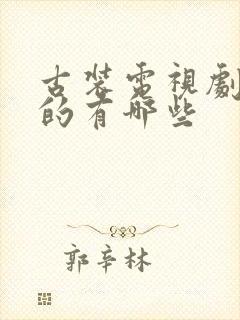 古裝電視劇
的有哪些
郭辛林